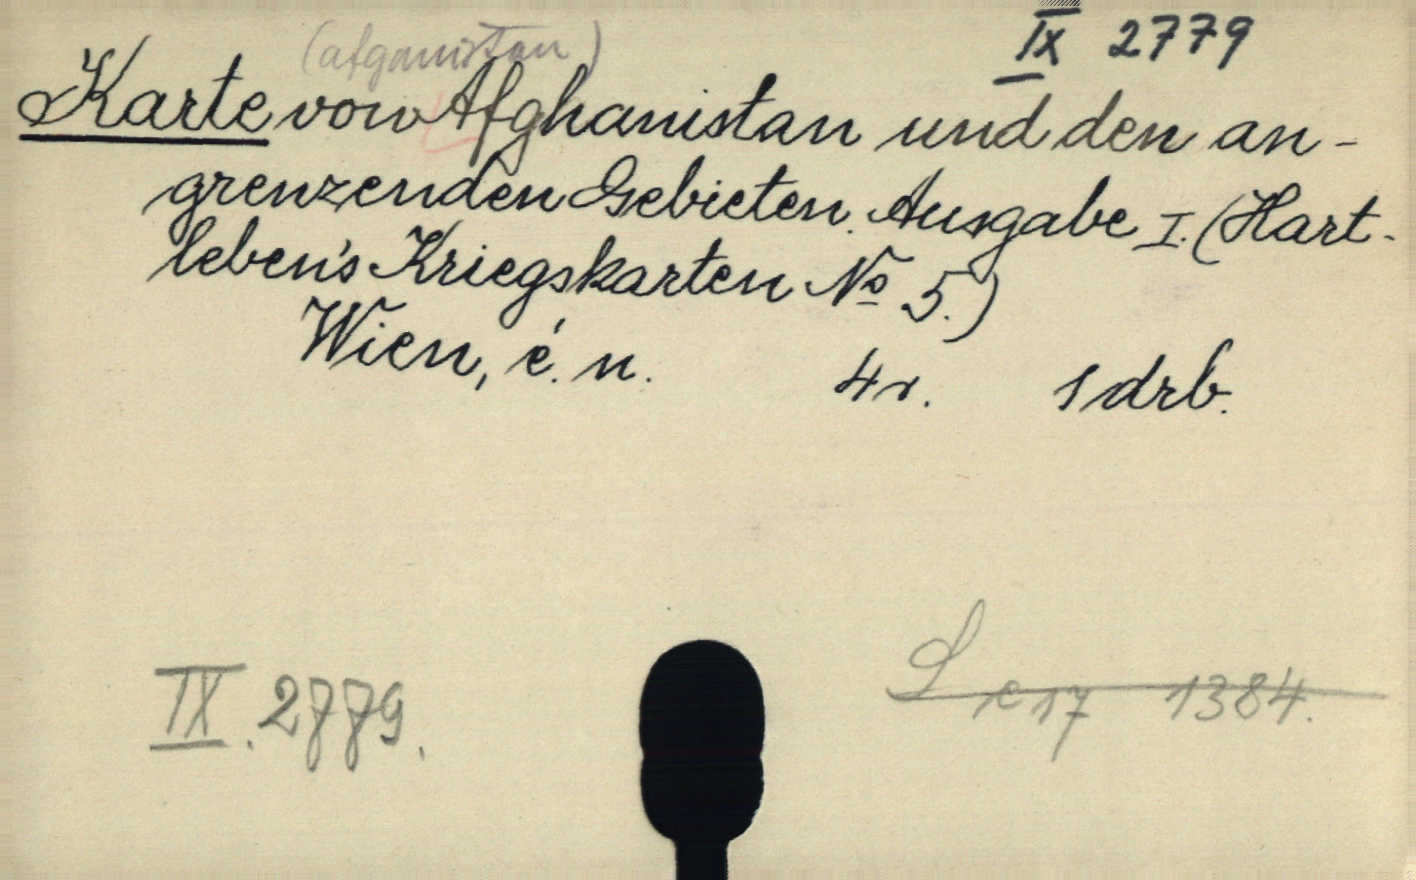 (afganistan)
IX 2779
Karte von Afghanistan und den an-
grenzenden Gebieten. Ausgabe I. (Hart-
leben's Kriegskarten No 5.)
Wien, é. n. 4r. 1 drb.
IX. 2779.
L 1384.